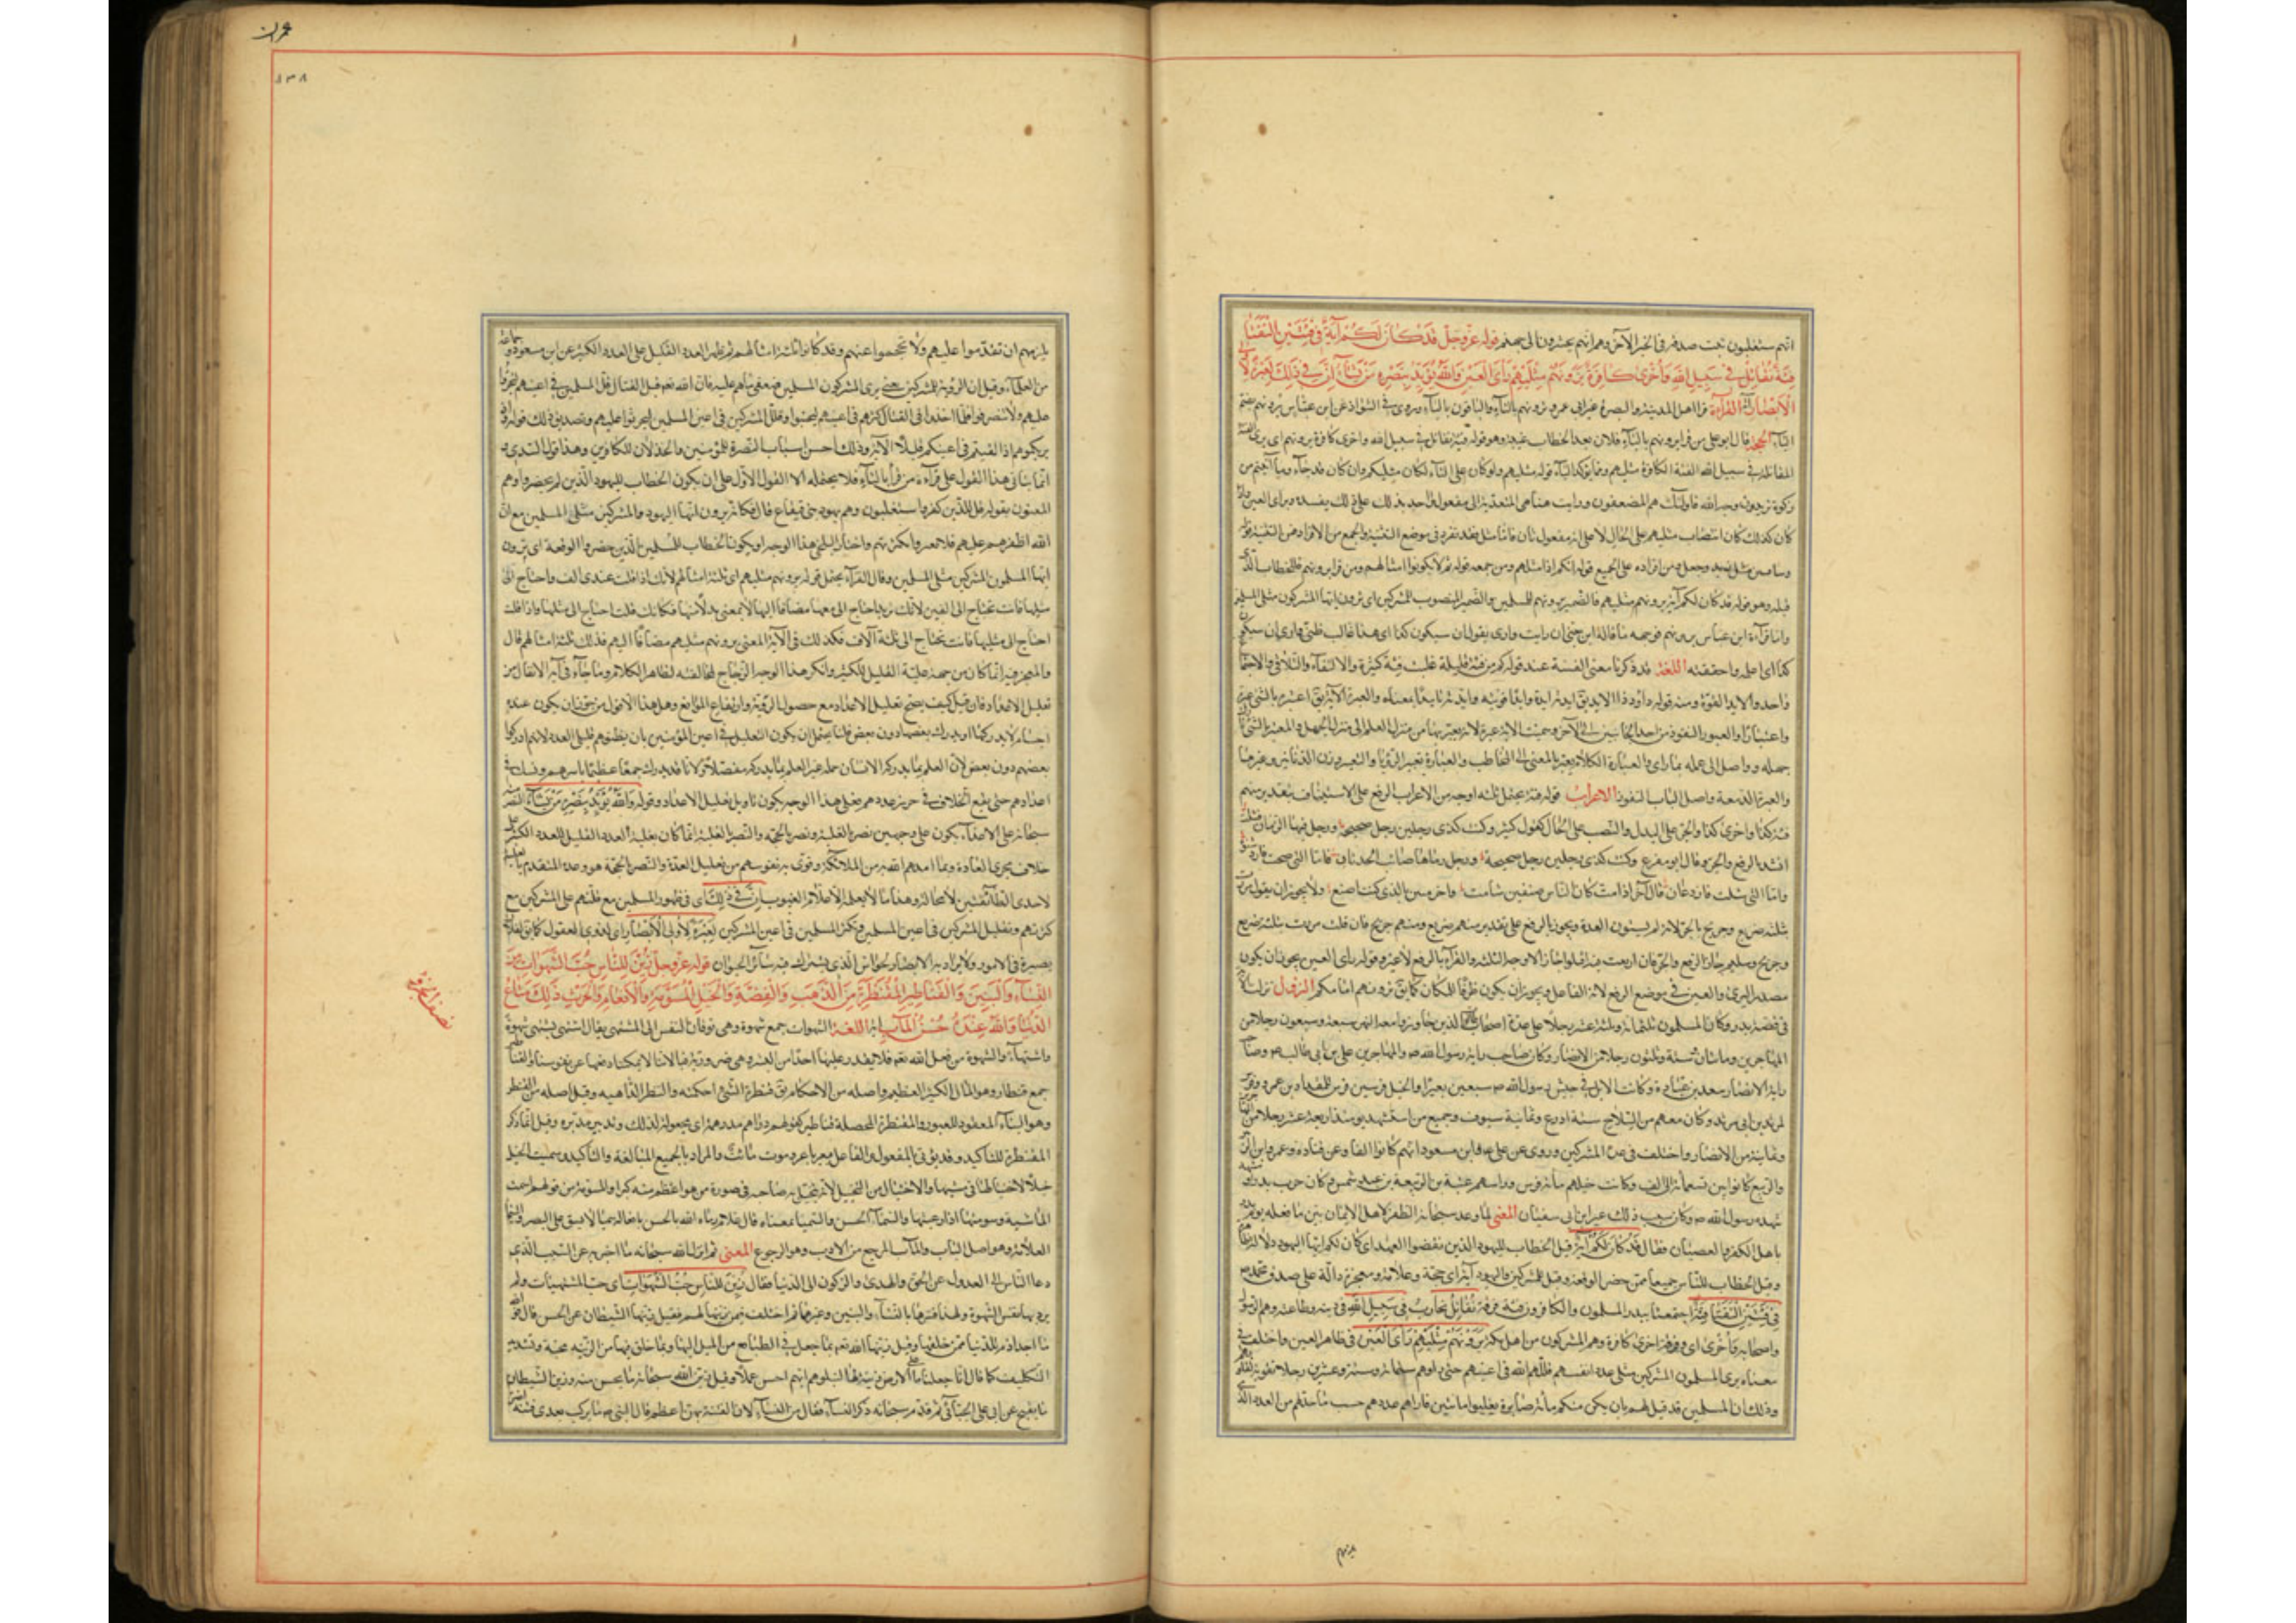 انهم ستغلبون ثبت صدقه في الخبر الآخر وهم انهم يحشرون الى جهنم قوله عز وجل قَدْ كَانَ لَكُمْ آيَةٌ فِي فِئَتَيْنِ الْتَقَتَا
فِئَةٌ تُقَاتِلُ فِي سَبِيلِ اللَّهِ وَأُخْرَى كَافِرَةٌ يَرَوْنَهُمْ مِثْلَيْهِمْ رَأْيَ الْعَيْنِ وَاللَّهُ يُؤَيِّدُ بِنَصْرِهِ مَنْ يَشَاءُ إِنَّ فِي ذَلِكَ لَعِبْرَةً لِأُولِي
الْأَبْصَارِ آية القراءة قرأ اهل المدينة والبصرة غير ابي عمرو ترونهم بالتاء والباقون بالياء وروي في الشواذ عن ابن عباس يرونهم بضم
الياء الحجة قال ابو علي من قرأ يرونهم بالياء فلان بعد الخطاب غيبة وهو قوله فئة تقاتل في سبيل الله واخرى كافرة يرونهم اي يرى الفئة
المقاتلة في سبيل الله الفئة الكافرة مثليهم ومما يؤكد الياء قوله مثليهم ولو كان على التاء لكان مثليكم وان كان قد جاء وما آتيتم من
زكوة تريدون وجه الله فاولئك هم المضعفون ورايت هنا هي المتعدية الى مفعول واحد يدلك على ذلك تقييده براي العين واذا
كان كذلك كان انتصاب مثليهم على الحال لا على انه مفعول ثان
قبله وهو قوله قد كان لكم آية يرونهم مثليهم فالضمير
واما قراءة ابن عباس يرونهم فوجهه ما قاله ابن جني ان رايت وارى يقول ان سيكون كذا اي هذا غالب ظني وارى ان سيكون
كذا اي اعلمه واحققه اللغة قد ذكرنا معنى الفئة عند قوله كم من فئة قليلة غلبت فئة كثيرة والالتقاء والتلاقي والاجتماع
واحد والايد القوة ومنه قوله داود ذا الايد
جهله وواصل الى علمه بما راى والعبارة الكلام يعبر بالمعنى الى المخاطب والعبارة تعبير الرؤيا والتعبير وزن الدنانير وغيرها
والعبرة الدمعة واصل الباب النفوذ الاعراب قوله فئة يحتمل ثلثة اوجه من الاعراب الرفع على الاستيناف بتقدير منهم
فئة كذا واخرى كذا والجر على البدل والنصب على الحال كقول كثير وكنت كذي رجلين رجل صحيحة ورجل رمى فيها الزمان فشلت
انشد بالرفع والجر وقال ابن مفرغ وكنت كذي رجلين رجل صحيحة ورجل رماها صائب الحدثان فاما التي صحت فازد شنوءة
واما التي شلت فازد عمان قال آخر اذا مت كان الناس صنفين شامت وآخر مثن بالذي كنت اصنع ولا يجوز ان يقول مررت
بثلثة صريع وجريح بالجر لانه لم يستوف العدة ويجوز بالرفع على تقدير منهم صريع ومنهم جريح فان قلت مررت بثلثة صريع
وجريح وسليم جاز الرفع والجر
مصدر البرى والعين في موضع الرفع لانه الفاعل ويجوز ان يكون ظرفا للمكان كما يق ترونهم امامكم النزول نزلت الآية
في قصة بدر وكان المسلمون ثلثمائة وثلثة عشر رجلا على عدة اصحاب طالوت الذين جاوزوا معه النهر سبعة وسبعون رجلا من
المهاجرين ومائتان وستة وثلثون رجلا من الانصار وكان صاحب راية رسول الله ص والمهاجرين علي بن ابي طالب ع وصاحب
راية الانصار سعد بن عبادة وكانت الابل في جيش رسول الله ص سبعين بعيرا والخيل فرسين فرس للمقداد بن عمرو وفرس
لمرثد بن ابي مرثد وكان معهم من السلاح ستة ادرع وثمانية سيوف وجميع من استشهد يومئذ اربعة عشر رجلا من المهاجرين
وثمانية من الانصار واختلف في عدة المشركين وروي عن علي ع وابن مسعود انهم كانوا الفا وعن قتادة وعروة بن الزبير
والربيع كانوا بين تسعمائة الى الف وكانت خيلهم مائة فرس وراسهم عتبة بن الربيعة بن عبد شمس وكان حرب بدر اول مشهد
شهده رسول الله ص وكان سبب ذلك عير ابي سفيان المعنى لما وعد سبحانه الظفر لاهل الايمان بين ما فعله يوم بدر
باهل الكفر والعصيان فقال قَدْ كَانَ لَكُمْ آيَةٌ قيل الخطاب لليهود الذين نقضوا العهد اي كان لكم ايها اليهود دلالة ظاهرة
وقيل الخطاب للناس جميعا ممن حضر الوقعة وقيل للمشركين واليهود آية اي حجة وعلامة ومعجزة دالة على صدق محمد ص
فِي فِئَتَيْنِ الْتَقَتَا اي فرقتين اجتمعتا ببدر المسلمون والكافرون فئة فرقة تُقَاتِلُ تحارب فِي سَبِيلِ اللَّهِ في دينه وطاعته وهم الرسول
واصحابه وَأُخْرَى اي وفرقة اخرى كافرة وهم المشركون من اهل مكة يَرَوْنَهُمْ مِثْلَيْهِمْ رَأْيَ الْعَيْنِ في ظاهر العين واختلف في
معناه يرى المسلمون المشركين مثلي عدد انفسهم قللهم الله في اعينهم حتى راوهم ستمائة وستة وعشرين رجلا تقوية لقلوبهم
وذلك ان المسلمين قد قيل لهم فان يكن منكم مائة صابرة يغلبوا مائتين فاراهم عددهم حسب ما حد لهم من العدد الذي
يلزمهم
عمران
١٣٨
يلزمهم ان يقدموا عليهم ولا يحجموا عنهم وقد كانوا ثلثة امثالهم ثم ظهر العدد القليل على العدد الكثير عن ابن مسعود وجماعة
من العلماء وقيل ان الرؤية للمشركين يعني يرى المشركون المسلمين ضعفي ما هم عليه فان الله تعم قبل القتال قلل المسلمين في اعينهم ليجترؤا
عليهم ولا ينصرفوا فلما اخذوا في القتال كثرهم في اعينهم ليجبنوا وقلل المشركين في اعين المسلمين ليجترئوا عليهم وتصديق ذلك قوله واذ
يريكموهم اذ التقيتم في اعينكم قليلا الآية وذلك احسن اسباب النصرة للمؤمنين والخذلان للكافرين وهذا قول السدي و
انما يتاتى هذا القول على قراءة من قرأ بالياء فلا يحتمله الا القول الاول على ان يكون الخطاب لليهود الذين لم يحضروا وهم
المعنون بقوله قل للذين كفروا ستغلبون وهم يهود بني قينقاع فكانه قال ترون ايها اليهود المشركين مثلي المسلمين مع ان
الله اظفرهم عليهم فلا تغتروا بكثرتكم واختار البلخي هذا الوجه او يكون الخطاب للمسلمين الذين حضروا الوقعة اي ترون
ايها المسلمون المشركين مثلي المسلمين وقال الفراء يحتمل قوله يرونهم مثليهم اي ثلثة امثالهم لانك اذا قلت عندي الف واحتاج الى
مثليها فانت تحتاج الى الفين
احتاج الى مثليها فانت تحتاج الى ثلثة آلاف فكذلك في الآية المعنى يرونهم مثليهم مضافا اليهم فذلك ثلثة امثالهم قال
والمعجز فيه انما كان من جهة غلبة القليل للكثير وانكر هذا الوجه الزجاج لمخالفته لظاهر الكلام وما جاء في آية الانفال من
تقليل الاعداد فان قيل كيف يصح تقليل الاعداد مع حصول الرؤية وارتفاع الموانع وهل هذا الا قول من جوز ان يكون عنده
اجسام لا يدركها او يدرك بعضها دون بعض قلنا يحتمل ان يكون التقليل في اعين المؤمنين بان يظنوهم قليلي العدد لانهم ادركوا
بعضهم دون بعض لان العلم بما يدركه الانسان جملة غير العلم بما يدركه مفصلا ولانا قد ندرك جمعا عظيما باسرهم ونشك في
اعدادهم حتى يقع الخلاف في حزر عددهم فعلى هذا الوجه يكون تاويل تقليل الاعداد وقوله وَاللَّهُ يُؤَيِّدُ بِنَصْرِهِ مَنْ يَشَاءُ النصر منه
سبحانه على الاعداء يكون على وجهين نصر بالغلبة ونصر بالحجة والنصر بالغلبة انما كان بغلبة العدد القليل للعدد الكثير على
خلاف مجرى العادة وبما امدهم الله به من الملائكة وقوى به نفوسهم من تقليل العدة والنصر بالحجة هو وعده المتقدم بالغلبة
لاحدى الطائفتين لا محالة وهذا ما لا يعلمه الا علام الغيوب إِنَّ فِي ذَلِكَ اي في ظهور المسلمين مع قلتهم على المشركين مع
كثرتهم وتقليل المشركين في اعين المسلمين وتكثير المسلمين في اعين المشركين لَعِبْرَةً لِأُولِي الْأَبْصَارِ اي لذوي العقول كما يق لفلان
بصيرة في الامور ولا يراد به الابصار بالحواس الذي يشترك فيه سائر الحيوان قوله عز وجل زُيِّنَ لِلنَّاسِ حُبُّ الشَّهَوَاتِ مِنَ
النِّسَاءِ وَالْبَنِينَ وَالْقَنَاطِيرِ الْمُقَنْطَرَةِ مِنَ الذَّهَبِ وَالْفِضَّةِ وَالْخَيْلِ الْمُسَوَّمَةِ وَالْأَنْعَامِ وَالْحَرْثِ ذَلِكَ مَتَاعُ
الْحَيَاةِ الدُّنْيَا وَاللَّهُ عِنْدَهُ حُسْنُ الْمَآبِ آية اللغة الشهوات جمع شهوة وهي توقان النفس الى المشتهى يقال اشتهى يشتهي شهوة
واشتهاء والشهوة من فعل الله تعم فلا يقدر عليها احد من البشر وهي ضرورية فينا لانا لا يمكننا دفعها عن نفوسنا والقناطير
جمع قنطار وهو المال الكثير العظيم واصله من الاحكام يق قنطرت الشيء احكمته والقنطر الداهية وقيل اصله من القنطرة
وهو البناء المعقود للعبور والمقنطرة المحصلة قناطير كقولهم دراهم مدرهمة اي مجعولة كذلك ودنانير مدنرة وقيل انما ذكر
المقنطرة للتاكيد
خيلا لاختيالها في مشيها والاختيال من التخيل لانه يتخيل به صاحبه في صورة من هو اعظم منه كبرا والمسومة من قولهم اسمت
الماشية وسومتها اذا رعيتها والسيماء الحسن والسيمياء بمعناه قال غلام رماه الله بالحسن يافعا له سيمياء لا تشق على البصر والسيما
العلامة وهو اصل الباب والمآب المرجع من الاوب وهو الرجوع المعنى ثم انزل الله سبحانه ما اخبر به عن السبب الذي
دعا الناس الى العدول عن الحق والهدى والركون الى الدنيا فقال زُيِّنَ لِلنَّاسِ حُبُّ الشَّهَوَاتِ اي حب المشتهيات ولم
يرد بها نفس الشهوة ولهذا فسرها بالنساء والبنين وغيرهما ثم اختلف فيمن زينها لهم فقيل زينها الشيطان عن الحسن قال فوالله
ما احد اذم للدنيا ممن خلقها وقيل زينها الله تعم بما جعل في الطباع من الميل اليها وبما خلق فيها من الزينة محنة وتشديد
التكليف كما قال انا جعلنا ما على الارض زينة لها لنبلوهم ايهم احسن عملا وقيل زين الله سبحانه ما يحسن منه وزين الشيطان
ما يقبح عن ابي علي الجبائي ثم قدم سبحانه ذكر النساء فقال من النساء لان الفتنة بهن اعظم قال النبي ص ما تركت بعدي فتنة اضر
نصف الجزو